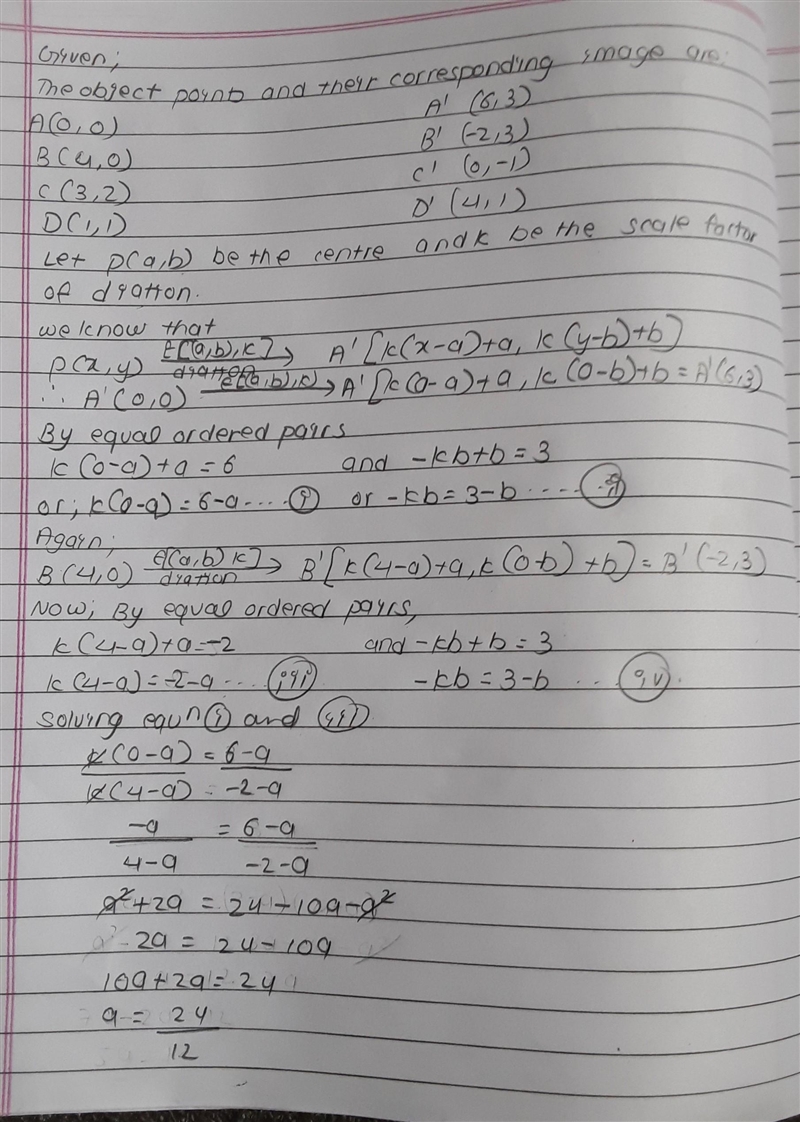 Given;
The object points and their corresponding image are:
A(0,0) A' (6,3)
B(4,0) B' (-2,3)
C(3,2) C' (0,-1)
D(1,1) D' (4,1)
Let P(a,b) be the centre and k be the scale factor
of diation.
we know that
P(x,y) E[(a,b),k] diation → A'[k(x-a)+a, k(y-b)+b]
∴ A'(0,0) E[(a,b),k] → A'[k(0-a)+a, k(0-b)+b = A'(6,3)
By equal ordered pairs
k(0-a)+a = 6 and -kb+b = 3
or; k(0-a) = 6-a .... (i) or -kb = 3-b .... (ii)
Again;
B(4,0) E[(a,b) k] diation → B'[k(4-a)+a, k(0-b)+b] = B'(-2,3)
Now; By equal ordered pairs,
k(4-a)+a=-2 and -kb+b = 3
k(4-a) = -2-a ... (iii) -kb = 3-b .. (iv).
solving equn (i) and (iii)
k(0-a) = 6-a
k(4-a) = -2-a
-a = 6-a
4-a -2-a
a²+2a = 24-10a-a²
2a = 24-10a
10a+2a = 24
a = 24
12